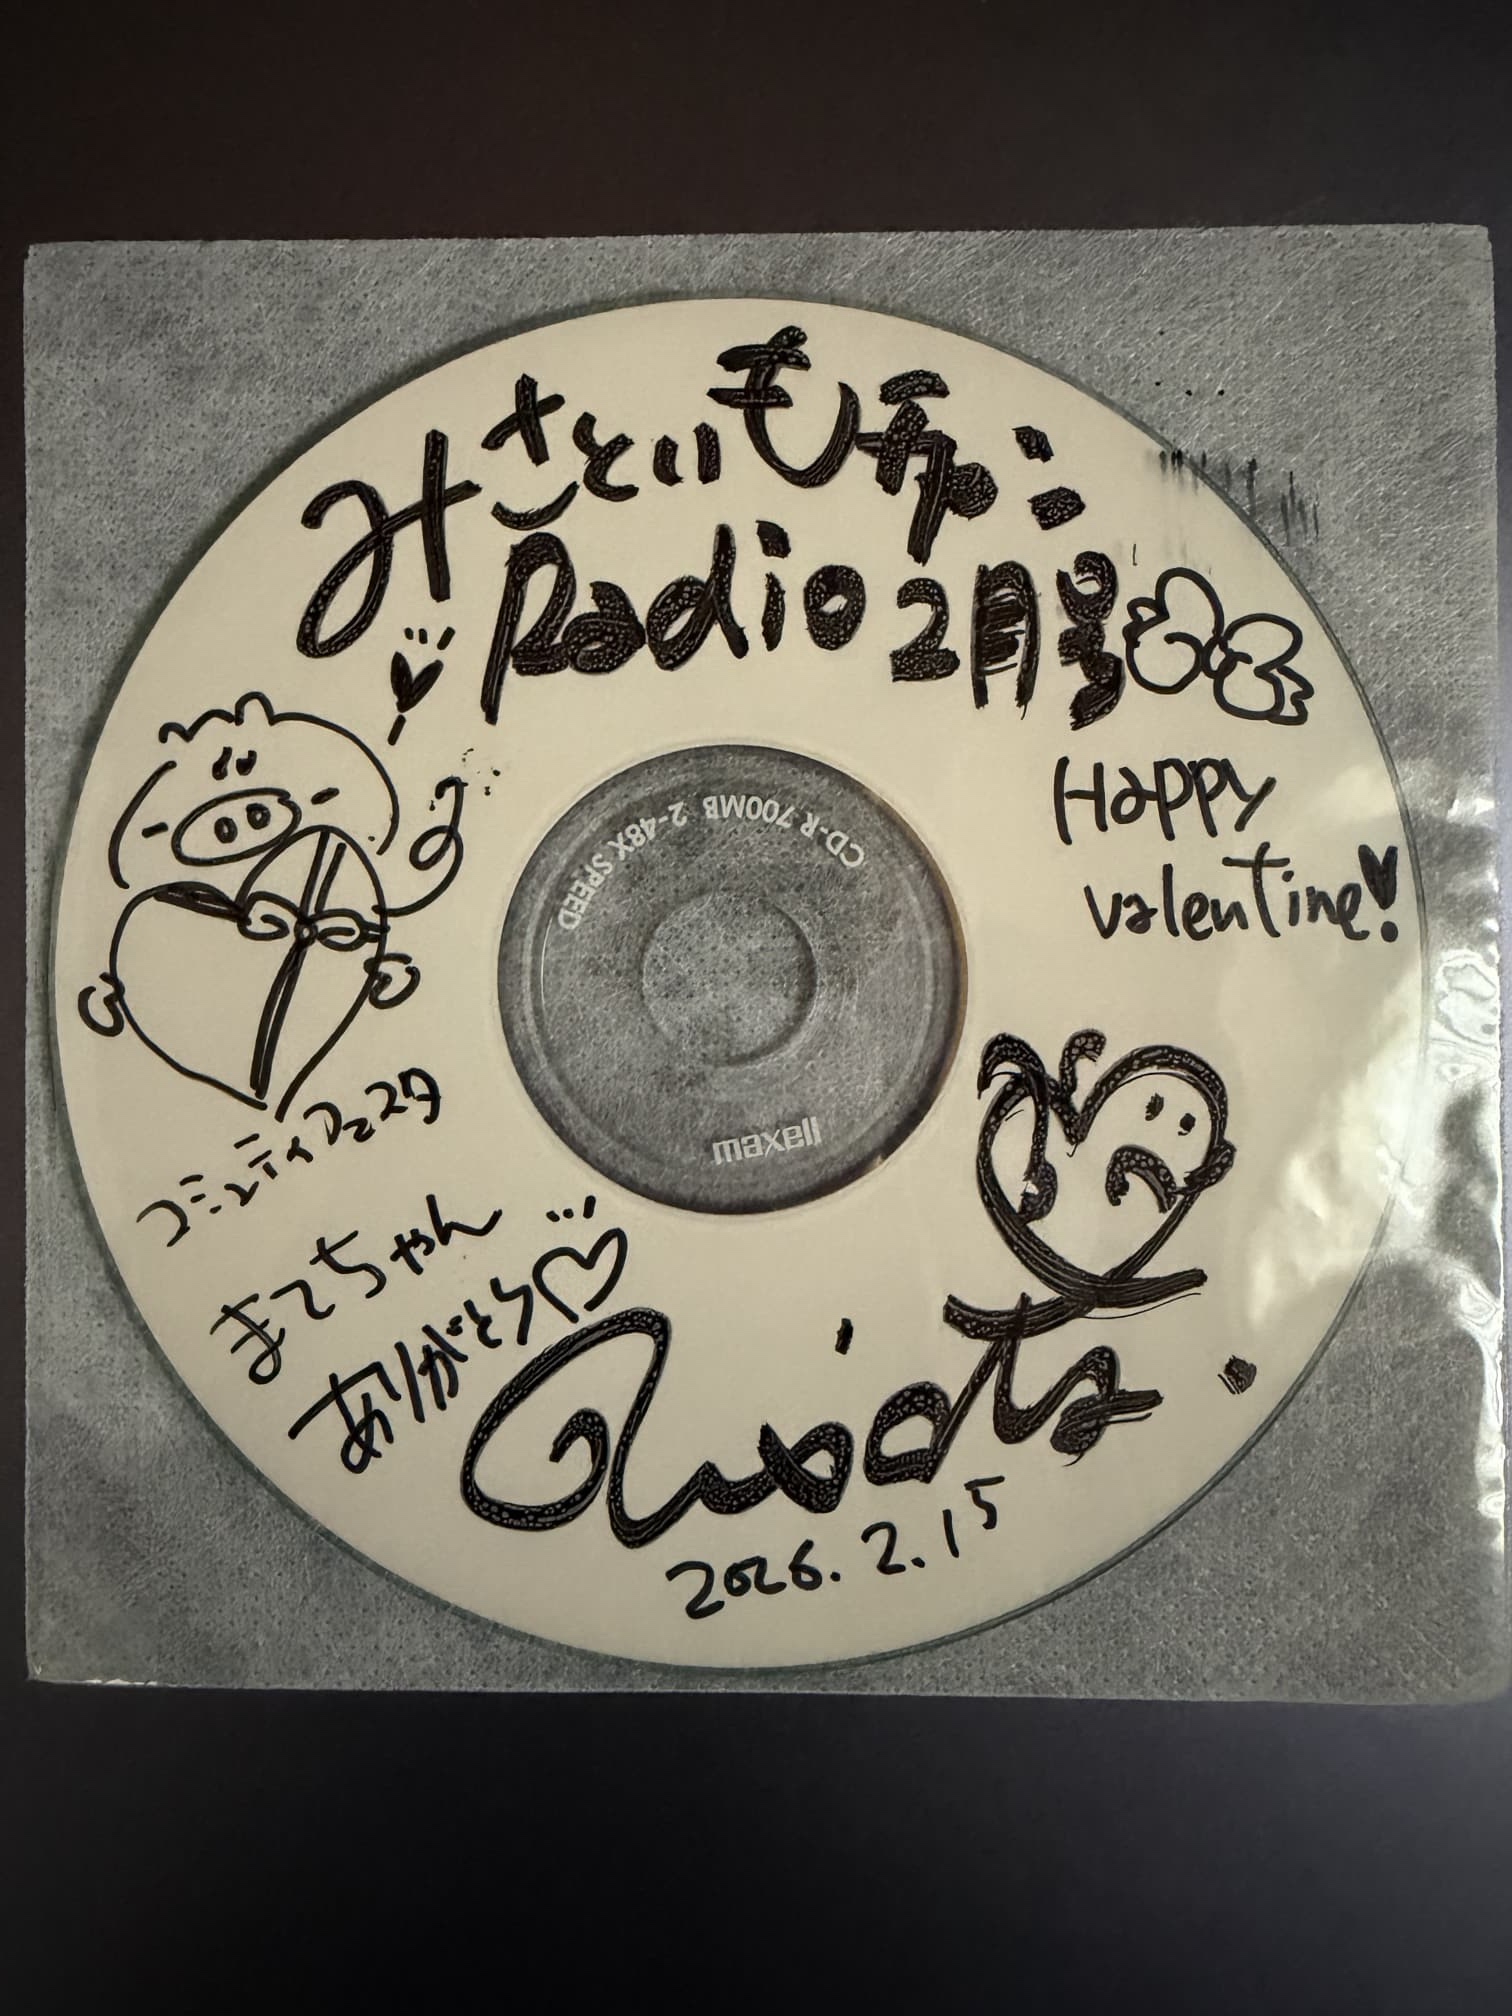 みさといも子の
Radio 2月号
Happy
valentine!
コミュニティフェスタ
まこちゃん
ありがとう
2026.2.15
CD-R 700MB 2-48X SPEED
maxell